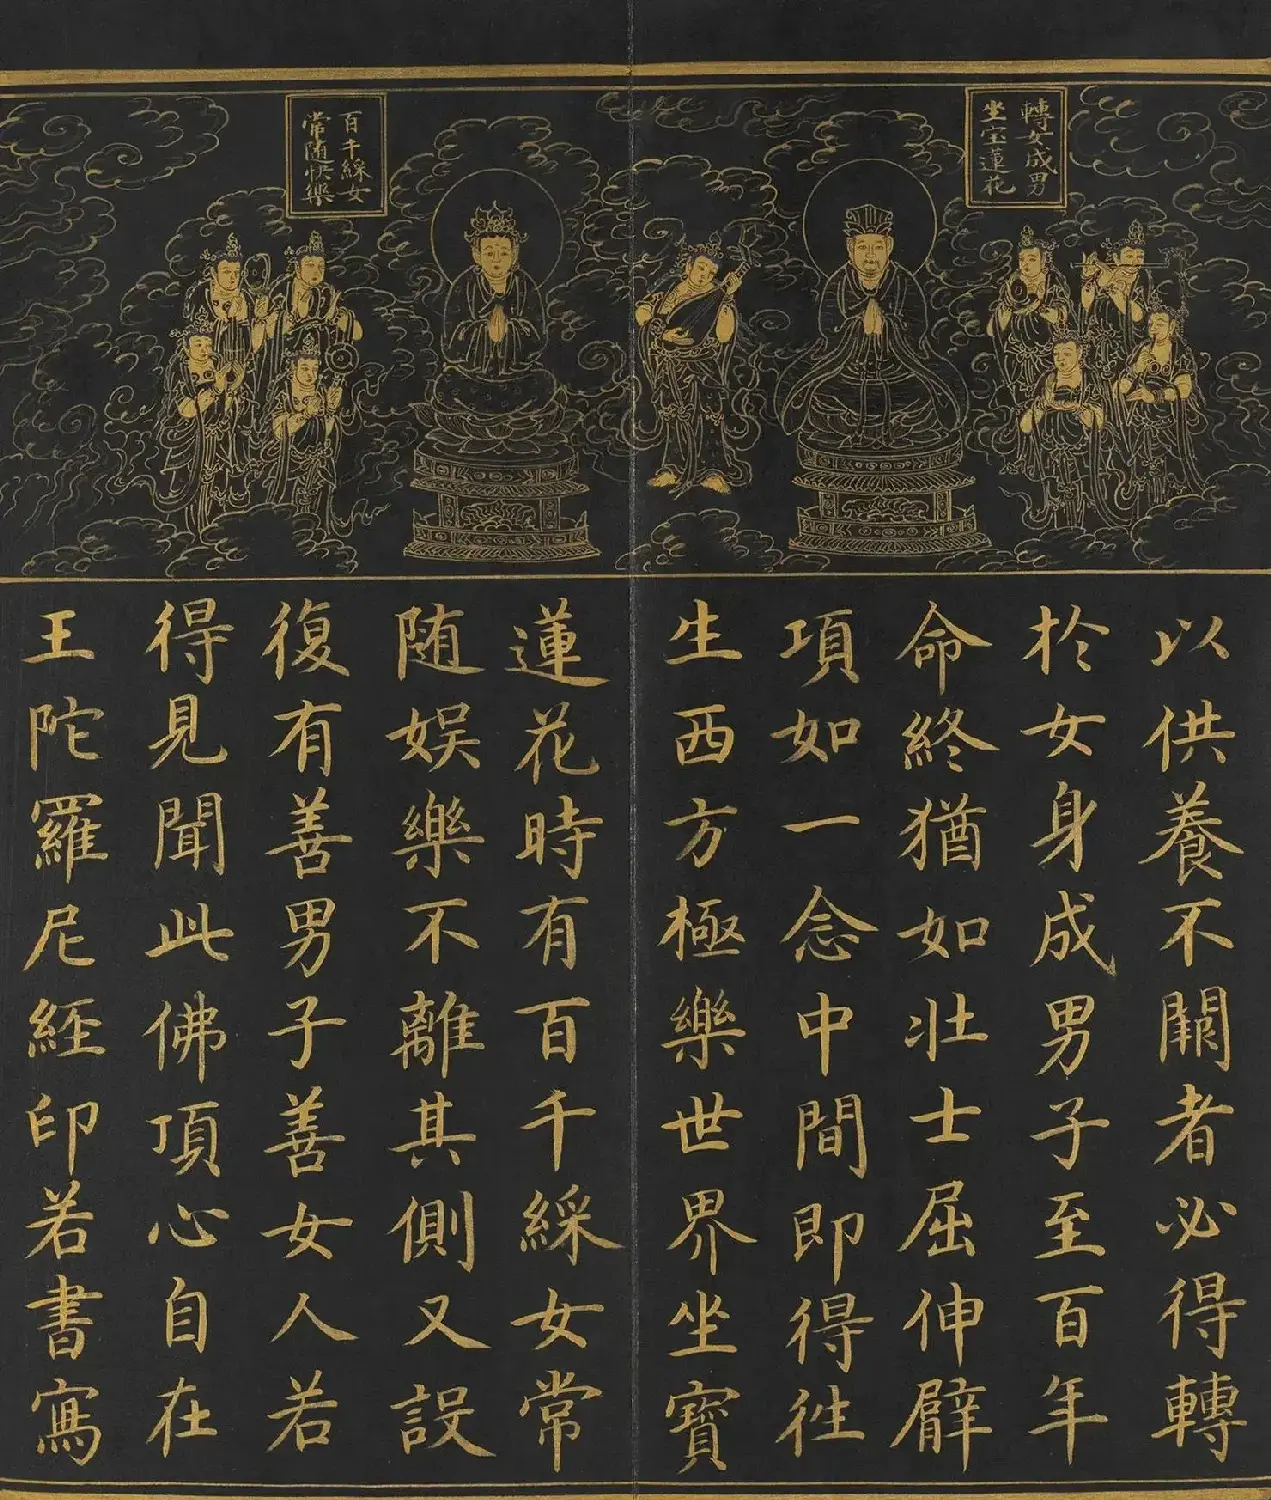 轉女成男
坐宝蓮花
百千綵女
常随快樂
以供養不闕者必得轉
於女身成男子至百年
命終猶如壮士屈伸臂
項如一念中間即得徃
生西方極樂世界坐寶
蓮花時有百千綵女常
随娱樂不離其側又設
復有善男子善女人若
得見聞此佛頂心自在
王陀羅尼經印若書寫